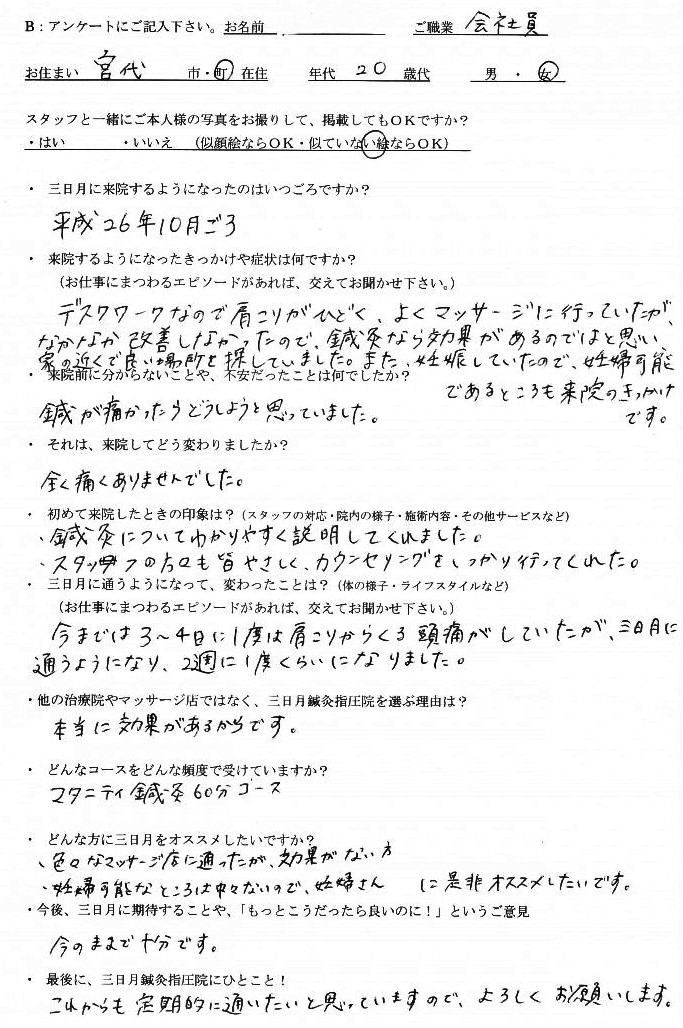 B：アンケートにご記入下さい。お名前 ご職業 会社員
お住まい 宮代 市・町 在住 年代 20 歳代 男 ・ 女
スタッフと一緒にご本人様の写真をお撮りして、掲載してもOKですか？
・はい ・いいえ （似顔絵ならOK・似ていない絵ならOK）
・ 三日月に来院するようになったのはいつごろですか？
平成26年10月ごろ
・ 来院するようになったきっかけや症状は何ですか？
（お仕事にまつわるエピソードがあれば、交えてお聞かせ下さい。）
デスクワークなので肩こりがひどく、よくマッサージに行っていたが、
なかなか改善しなかったので、鍼灸なら効果があるのではと思い、
家の近くで良い場所を探していました。また、妊娠していたので、妊婦可能
であるところも来院のきっかけ
です。
・ 来院前に分からないことや、不安だったことは何でしたか？
鍼が痛かったらどうしようと思っていました。
・ それは、来院してどう変わりましたか？
全く痛くありませんでした。
・ 初めて来院したときの印象は？（スタッフの対応・院内の様子・施術内容・その他サービスなど）
・鍼灸についてわかりやすく説明してくれました。
・スタッフの方々も皆やさしく、カウンセリングをしっかり行ってくれた。
・ 三日月に通うようになって、変わったことは？（体の様子・ライフスタイルなど）
（お仕事にまつわるエピソードがあれば、交えてお聞かせ下さい。）
今までは3～4日に1度は肩こりからくる頭痛がしていたが、三日月に
通うようになり、2週に1度くらいになりました。
・他の治療院やマッサージ店ではなく、三日月鍼灸指圧院を選ぶ理由は？
本当に効果があるからです。
・ どんなコースをどんな頻度で受けていますか？
マタニティ鍼灸60分コース
・ どんな方に三日月をオススメしたいですか？
・色々なマッサージ店に通ったが、効果がない方
・妊婦可能なところは中々ないので、妊婦さん に是非オススメしたいです。
・今後、三日月に期待することや、「もっとこうだったら良いのに！」というご意見
今のままで十分です。
・ 最後に、三日月鍼灸指圧院にひとこと！
これからも定期的に通いたいと思っていますので、よろしくお願いします。